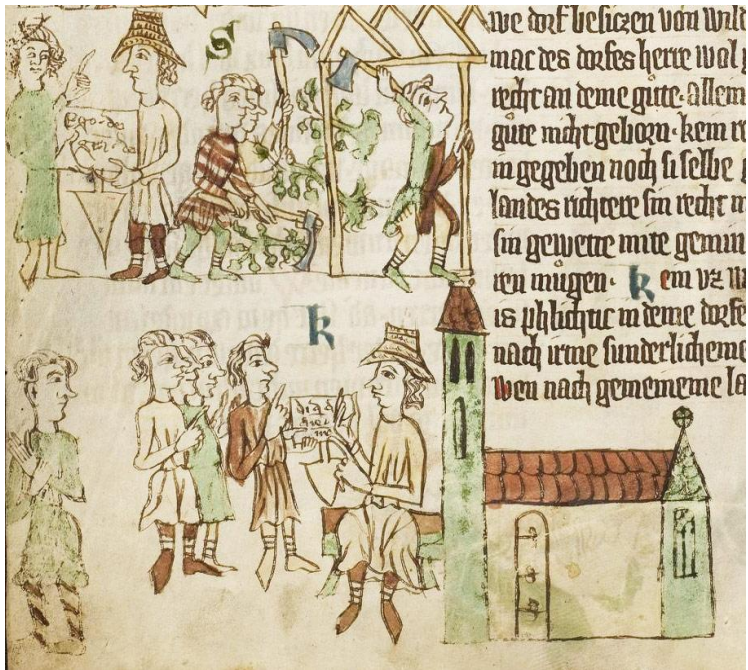 S
we dorf besiczen von wild
mac des dorfes herre wol
recht an deme gůte. allem
gůte nicht geborn. kem
in gegeben noch si selbe
landes richtere sin recht
sin gewette mite
ren můgen. kem vz
is phlichtic in deme dorfe
nach irme sunderlicheme
wen nach gemeineme la
Ego de
k